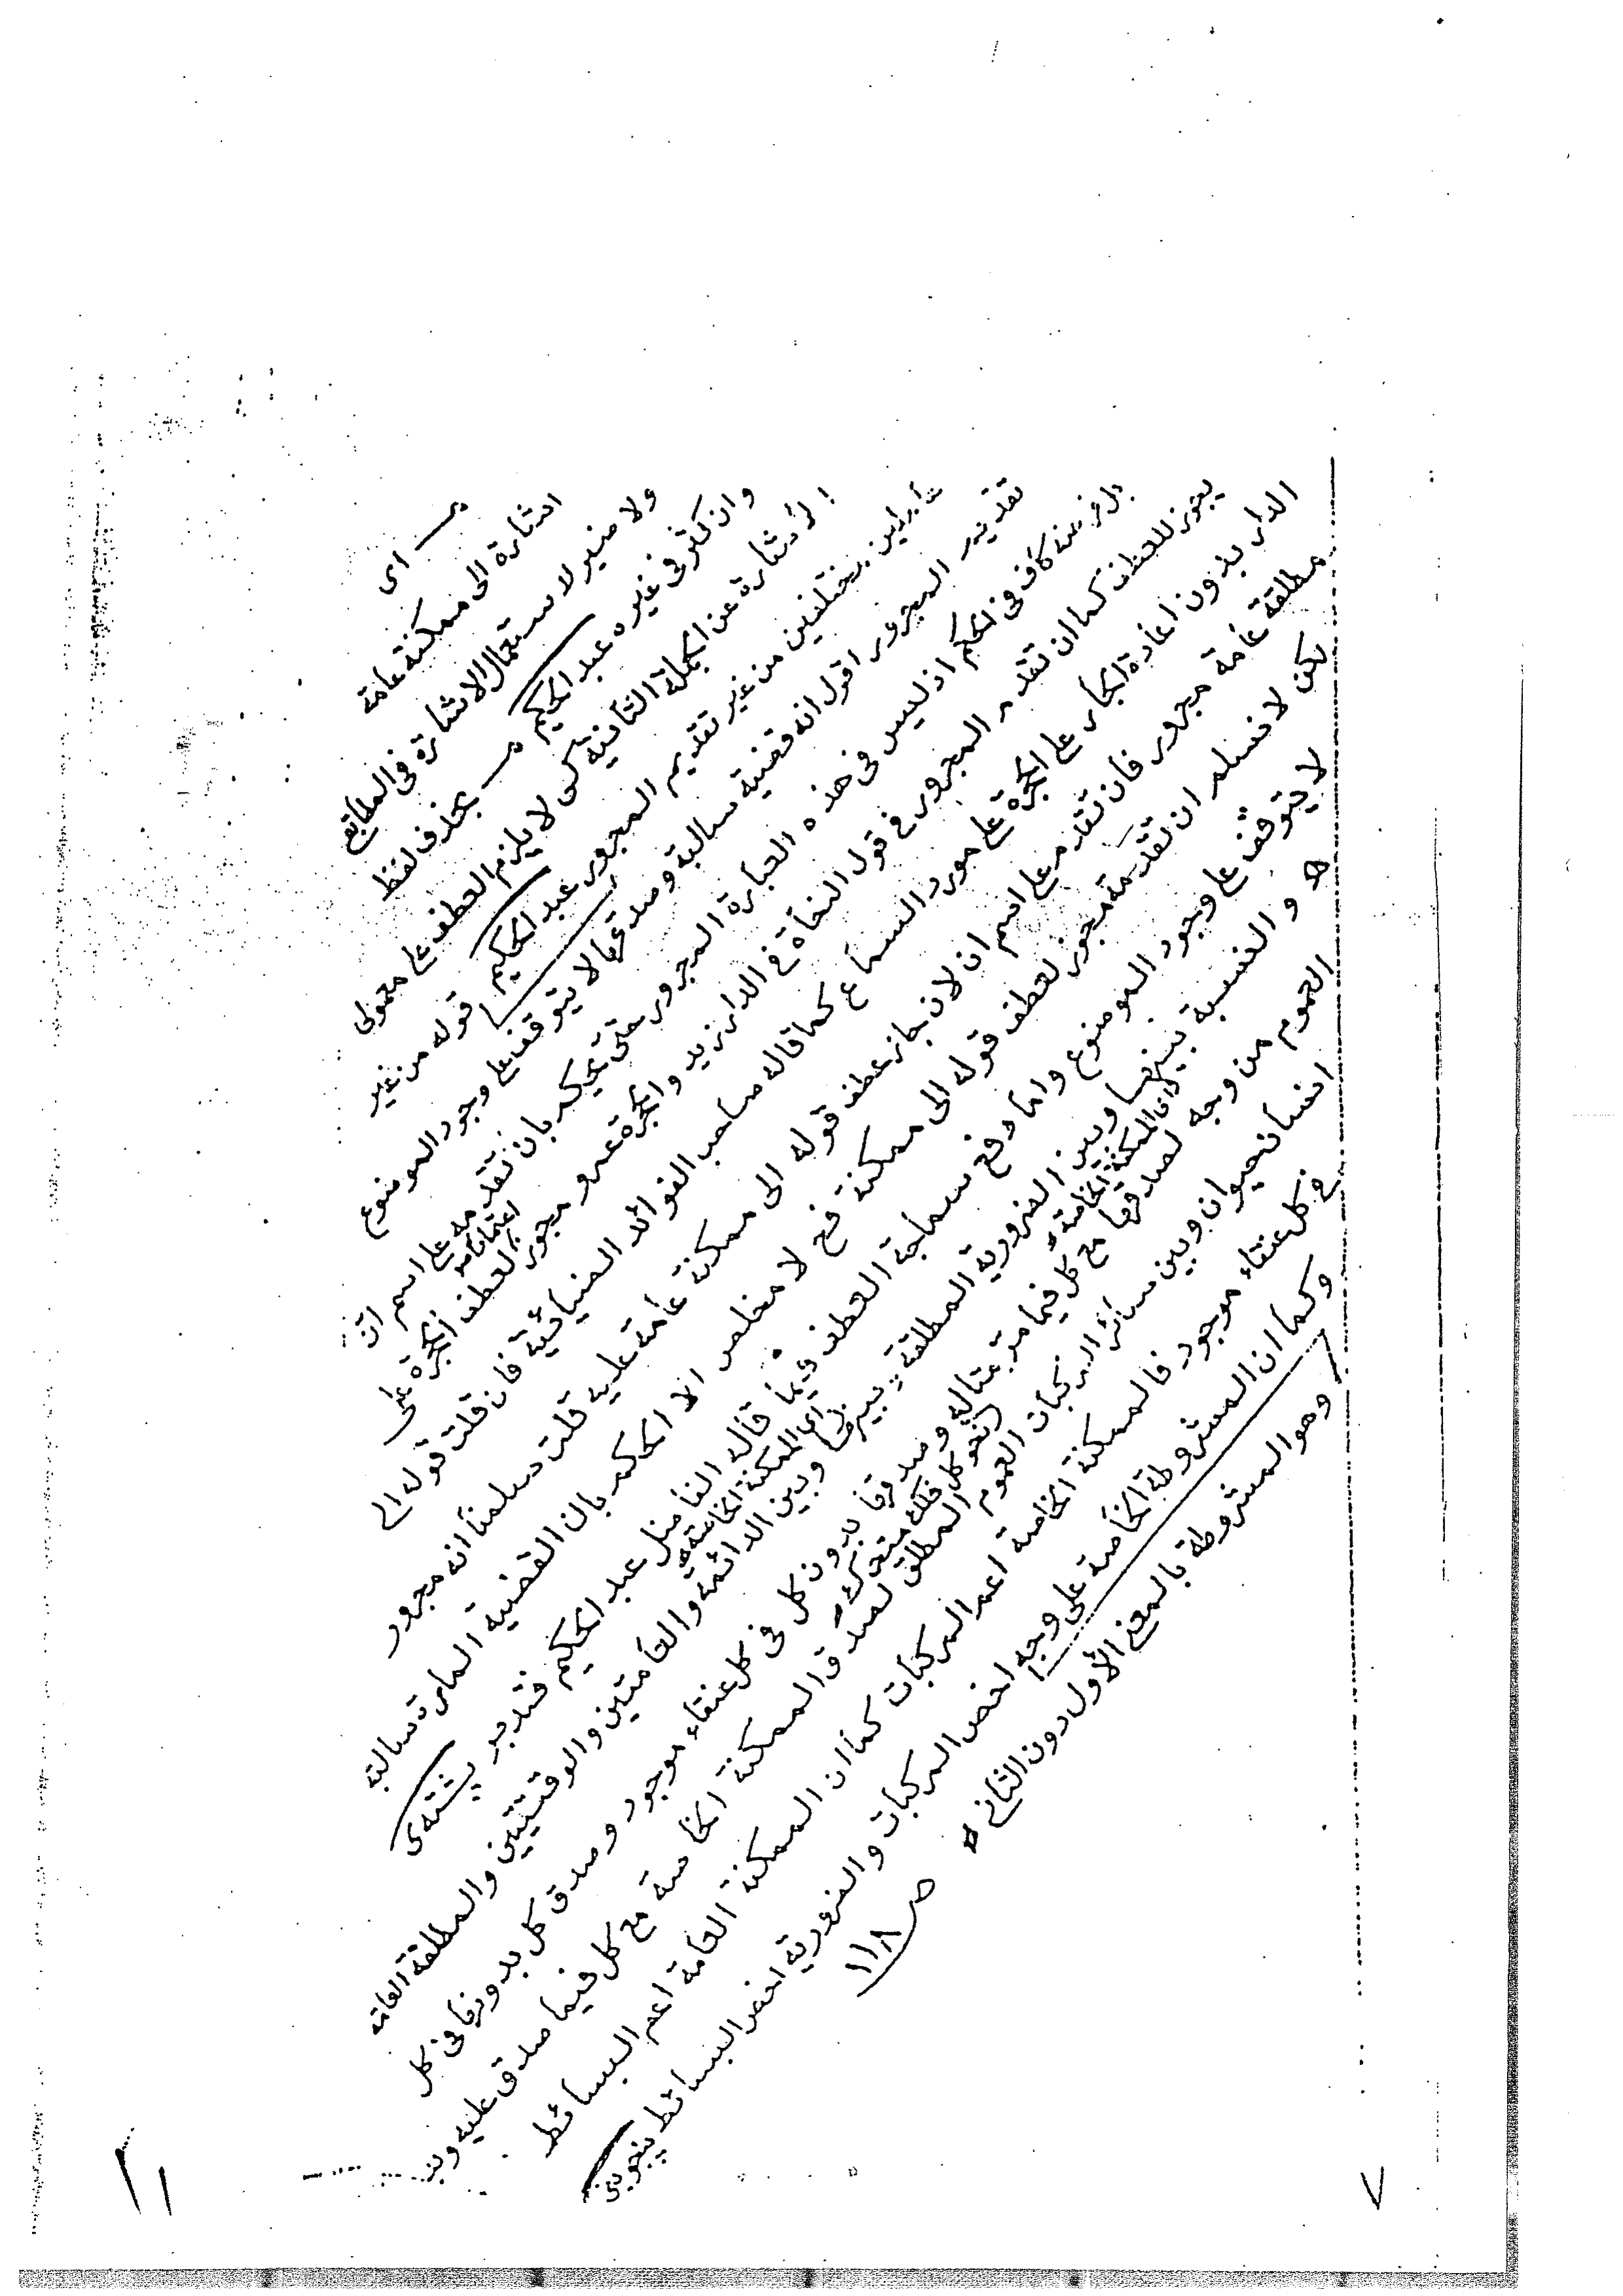 اى
اشارة الى ممكنة عامة
ولا ضير لاستعمال الاشارة فى
وان كثر فى غيره عبد الحكيم بحذف لفظ
الاشارة عن الجملة الثانية كى لا يلزم العطف على معمولى
عاملين مختلفين من غير تقديم المجرور عبد الحكيم قوله من غير
تقديم المجرور اقول انه قضية سالبة وصدقها لا يتوقف على وجود الموضوع
بل فرضه كاف فى الحكم اذ ليس فى هذه العبارة المجرور حتى يحكم بان تقدمه على اسم ان
يجوز للعطف كما ان تقدم المجرور فى قول النحاة فى الدار زيد والحجرة عمرو مجوز لعطف الحجرة على
الدار بدون اعادة الجار على الحجرة على مورد السماع كما قاله صاحب الفوائد الضيائية فان قلت قوله الى
مطلقة عامة مجرور فان تقدم على اسم ان لان جاز عطف قوله الى ممكنة عامة عليه قلت سلمنا انه مجرور
لكن لا نسلم ان تقدمه مجوز لعطف قوله الى ممكنة فح لا مخلص الا الحكم بان القضية المارة سالبة
لا يتوقف على وجود الموضوع واما دفع سماجة العطف فبما قاله الفاضل عبد الحكيم فتدبر
والنسبة بينها وبين الضرورية المطلقة بينها وبين الدائمة والعامتين والوقتيتين والمطلقة العامة
لان الممكنة الخاصة
اى الممكنة الخاصة
العموم من وجه لصدقها مع كل فيما مر مثاله وصدقها بدون كل فى كل عنقاء موجود وصدق كل بدونها فى كل
نحو كل فلك متحرك
انسان حيوان وبين سائر المركبات العموم المطلق لصدق الممكنة الخاصة مع كل فيما صدق عليه وبد
فى كل عنقاء موجود فالممكنة الخاصة اعم المركبات كما ان الممكنة العامة اعم البسائط
وكما ان المشروطة الخاصة على وجه اخص المركبات والضرورية اخص البسائط پنجوينى
وهو المشروطة بالمعنى الأول دون الثانى
ص ١١٨
١١
٧